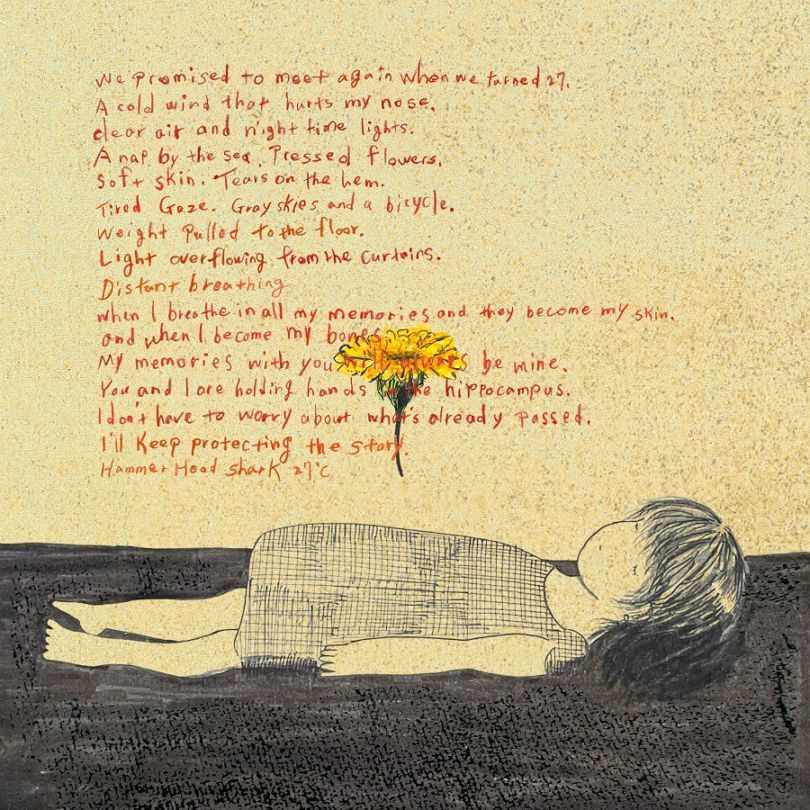 We promised to meet again when we turned 27.
A cold wind that hurts my nose.
clear air and night time lights.
A nap by the sea. Pressed flowers.
Soft skin. Tears on the hem.
Tired Gaze. Gray skies and a bicycle.
Weight Pulled to the floor.
Light overflowing from the curtains.
Distant breathing
when I breathe in all my memories and they become my skin.
and when I become my bones
My memories with you will always be mine.
You and I are holding hands in the hippocampus.
I don't have to worry about what's already passed.
I'll Keep protecting the story.
Hammer Head Shark 27°C